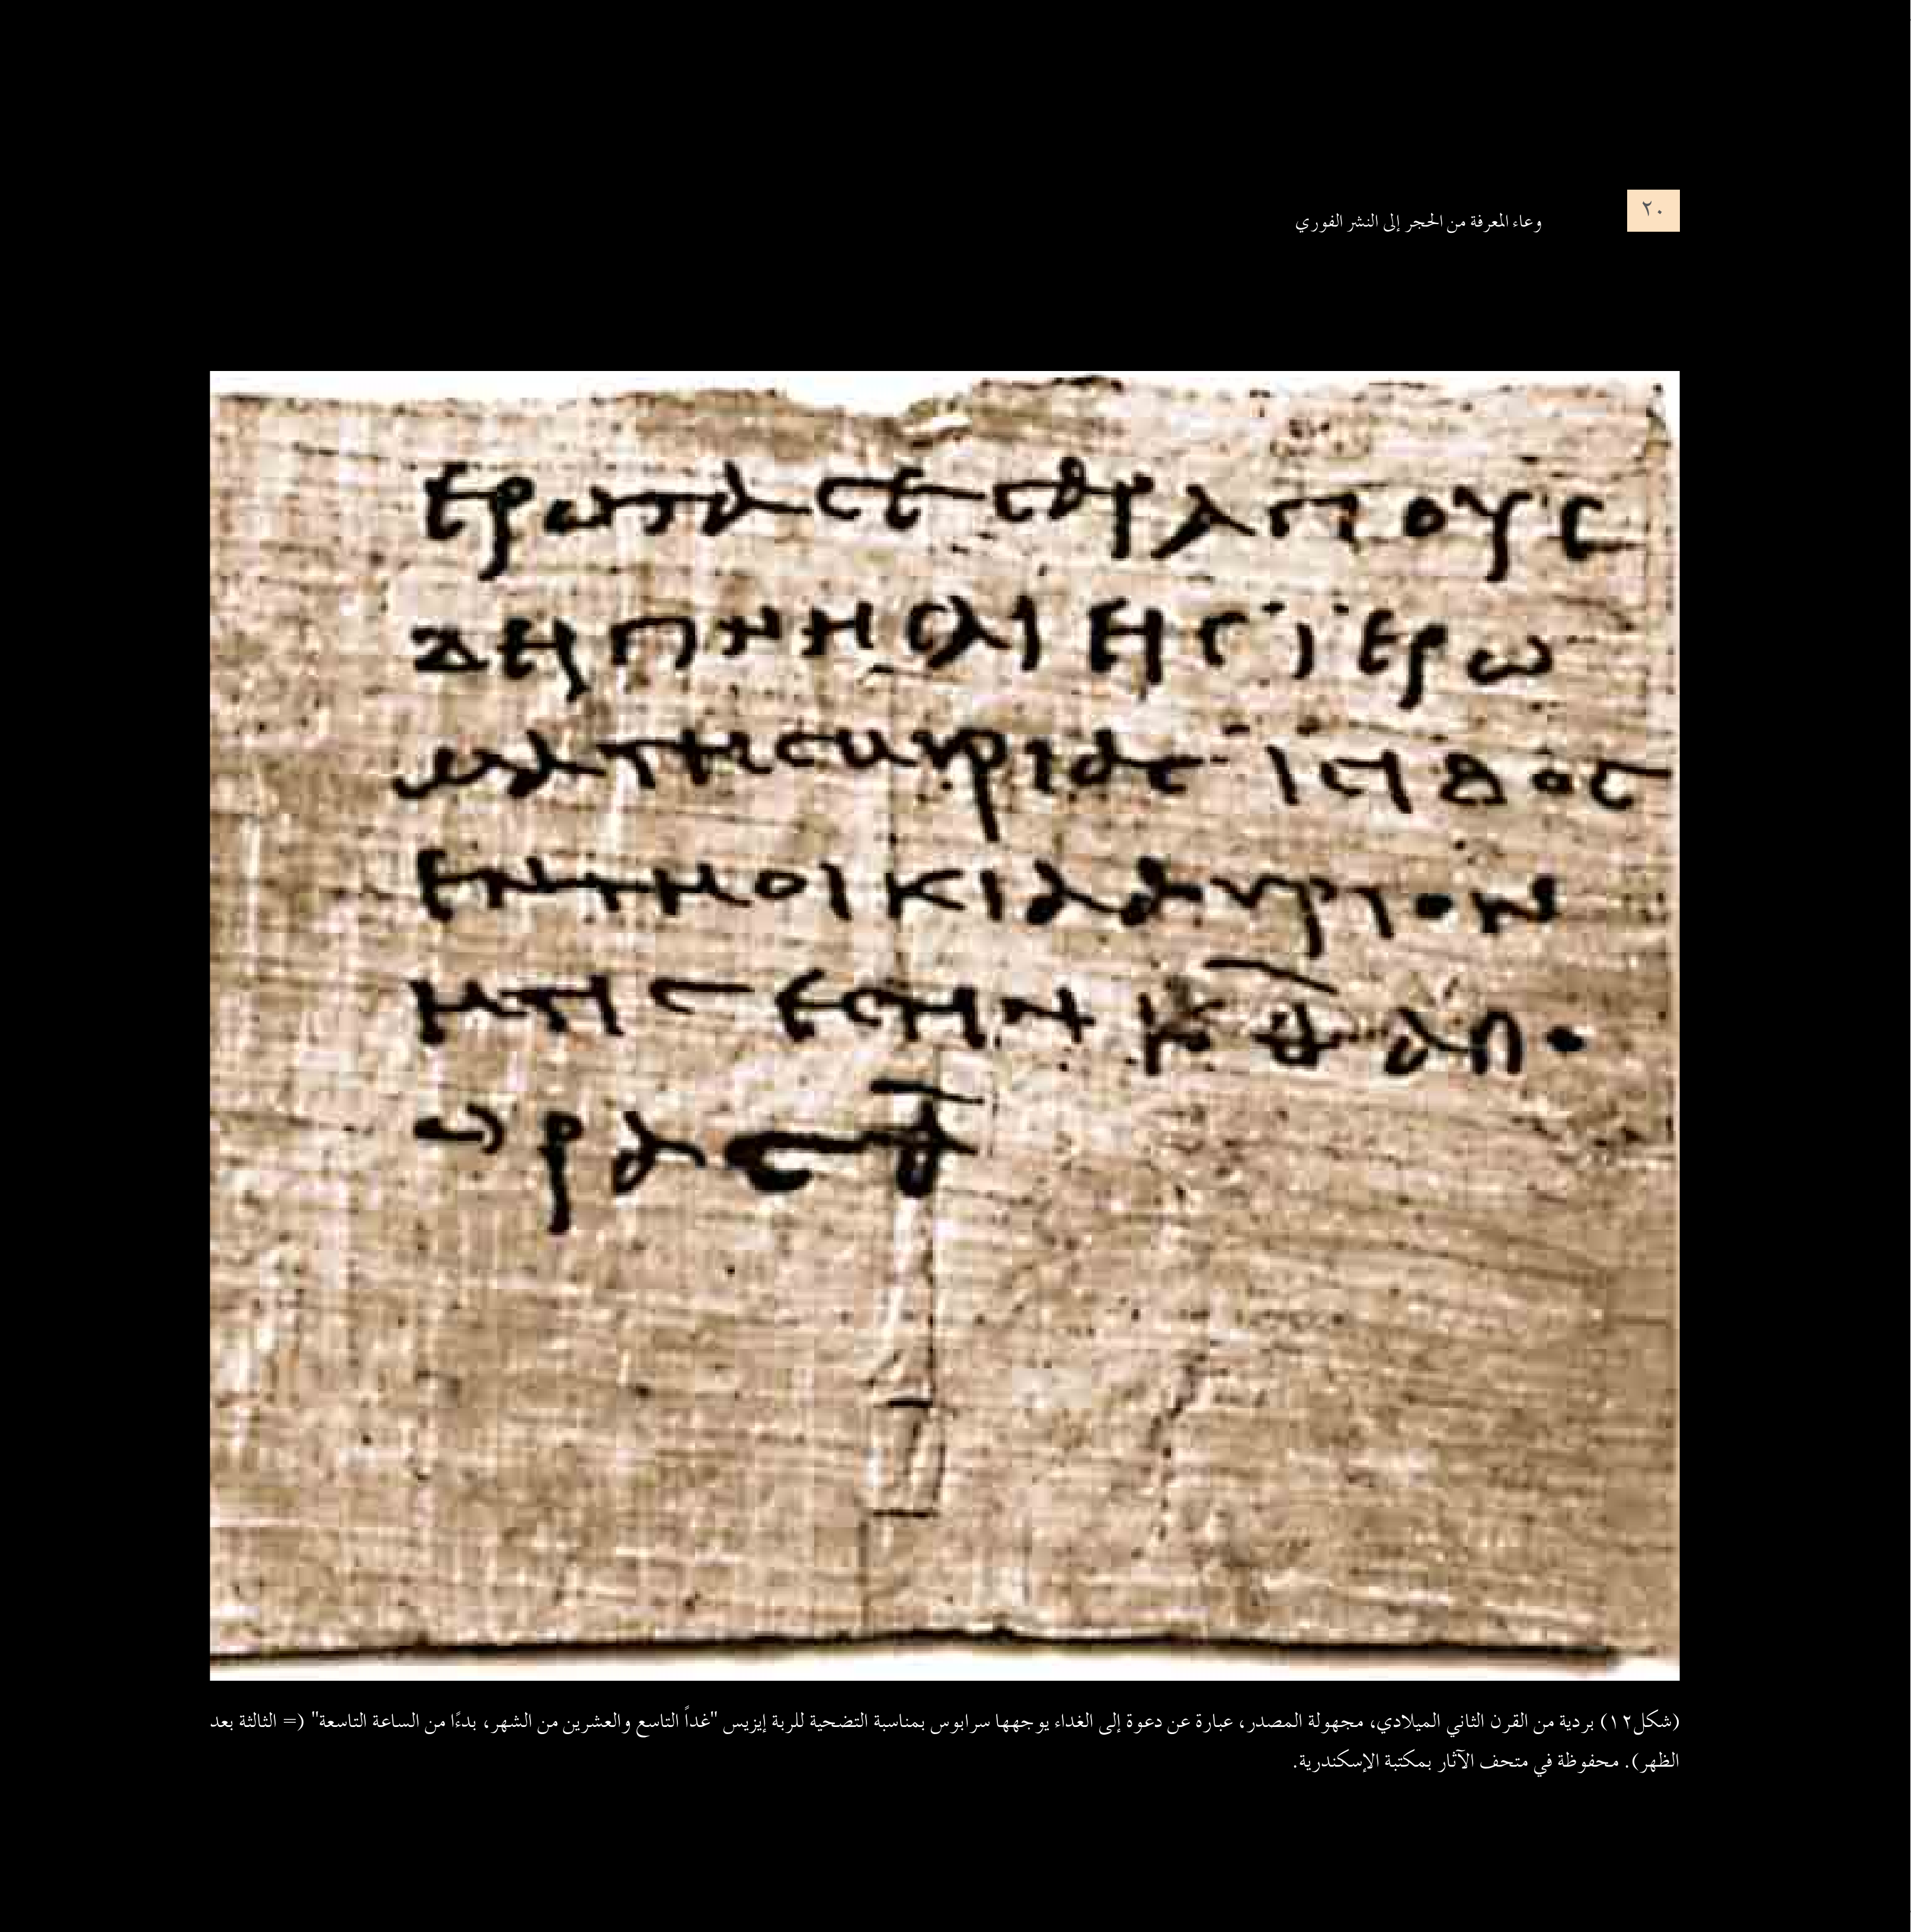 ٢٠
وعاء المعرفة من الحجر إلى النشر الفوري
ερωτα σε σαραπους
δειπνησαι εις ϊερω
μα της κυριας ϊσιδος
εν τη οικια αυριον
ητις εστιν κθ απο
ωρας θ
(شكل١٢) بردية من القرن الثاني الميلادي، مجهولة المصدر، عبارة عن دعوة إلى الغداء يوجهها سرابوس بمناسبة التضحية للربة إيزيس "غداً التاسع والعشرين من الشهر، بدءًا من الساعة التاسعة" (= الثالثة بعد
الظهر). محفوظة في متحف الآثار بمكتبة الإسكندرية.